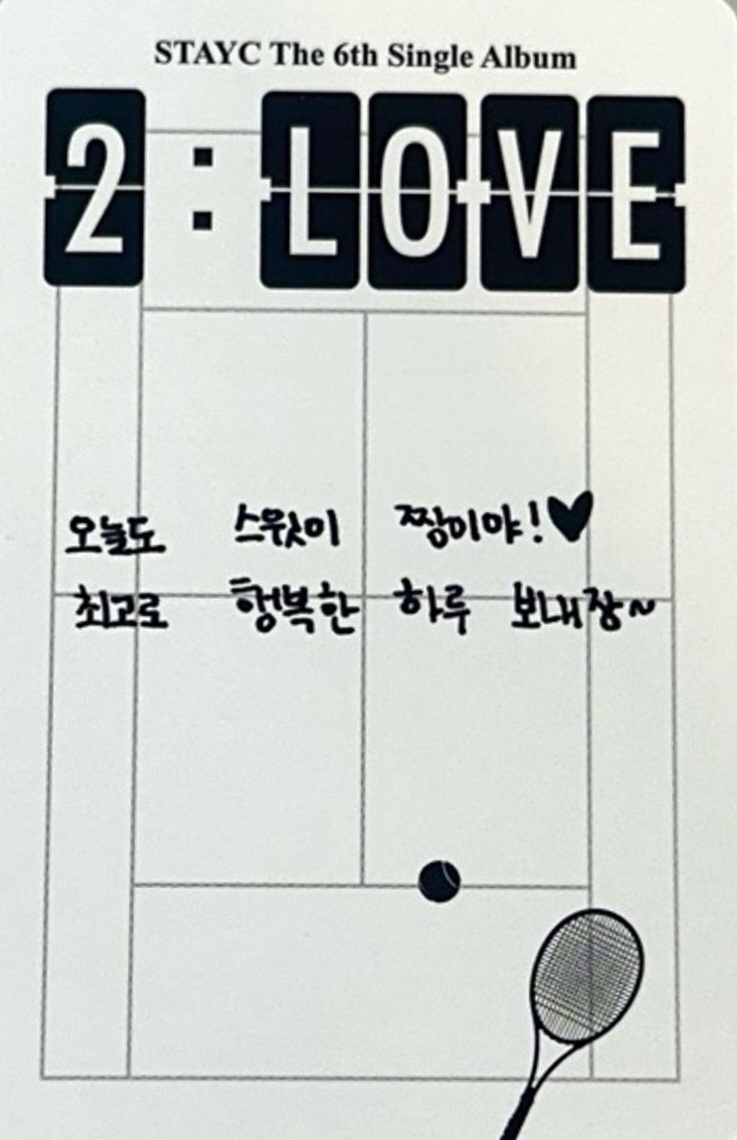 STAYC The 6th Single Album
2:LOVE
오늘도 스윗이 짱이야!♥
최고로 행복한 하루 보내장~